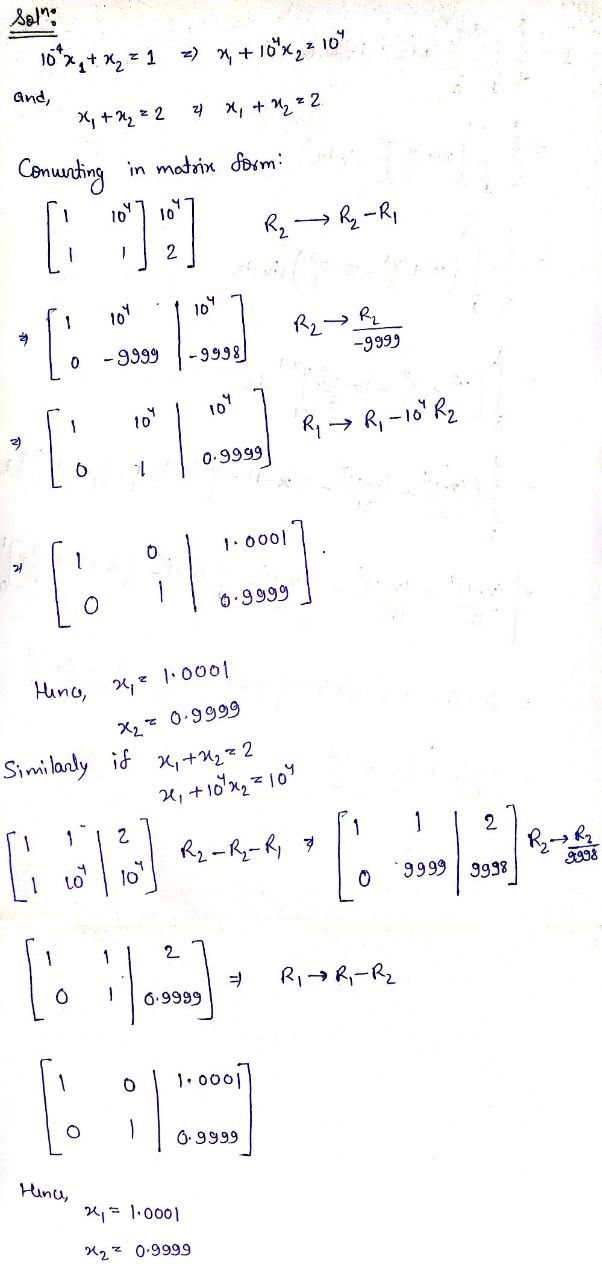 Solⁿ:
10⁻⁴x₁ + x₂ = 1 ⇒ x₁ + 10⁴x₂ = 10⁴
and,
x₁ + x₂ = 2 ⇒ x₁ + x₂ = 2
Converting in matrix form:
[1 10⁴] 10⁴]
[1 1] 2] R₂ → R₂ - R₁
⇒ [1 10⁴ | 10⁴]
[0 -9999 | -9998] R₂ → R₂/-9999
⇒ [1 10⁴ | 10⁴]
[0 1 | 0.9999] R₁ → R₁ - 10⁴ R₂
⇒ [1 0 | 1.0001]
[0 1 | 0.9999].
Hence, x₁ = 1.0001
x₂ = 0.9999
Similarly if x₁ + x₂ = 2
x₁ + 10⁴x₂ = 10⁴
[1 1 | 2]
[1 10⁴ | 10⁴] R₂ - R₂ - R₁ ⇒ [1 1 | 2]
[0 9999 | 9998] R₂ → R₂/9998
[1 1 | 2]
[0 1 | 0.9999] ⇒ R₁ → R₁ - R₂
[1 0 | 1.0001]
[0 1 | 0.9999]
Hence,
x₁ = 1.0001
x₂ = 0.9999